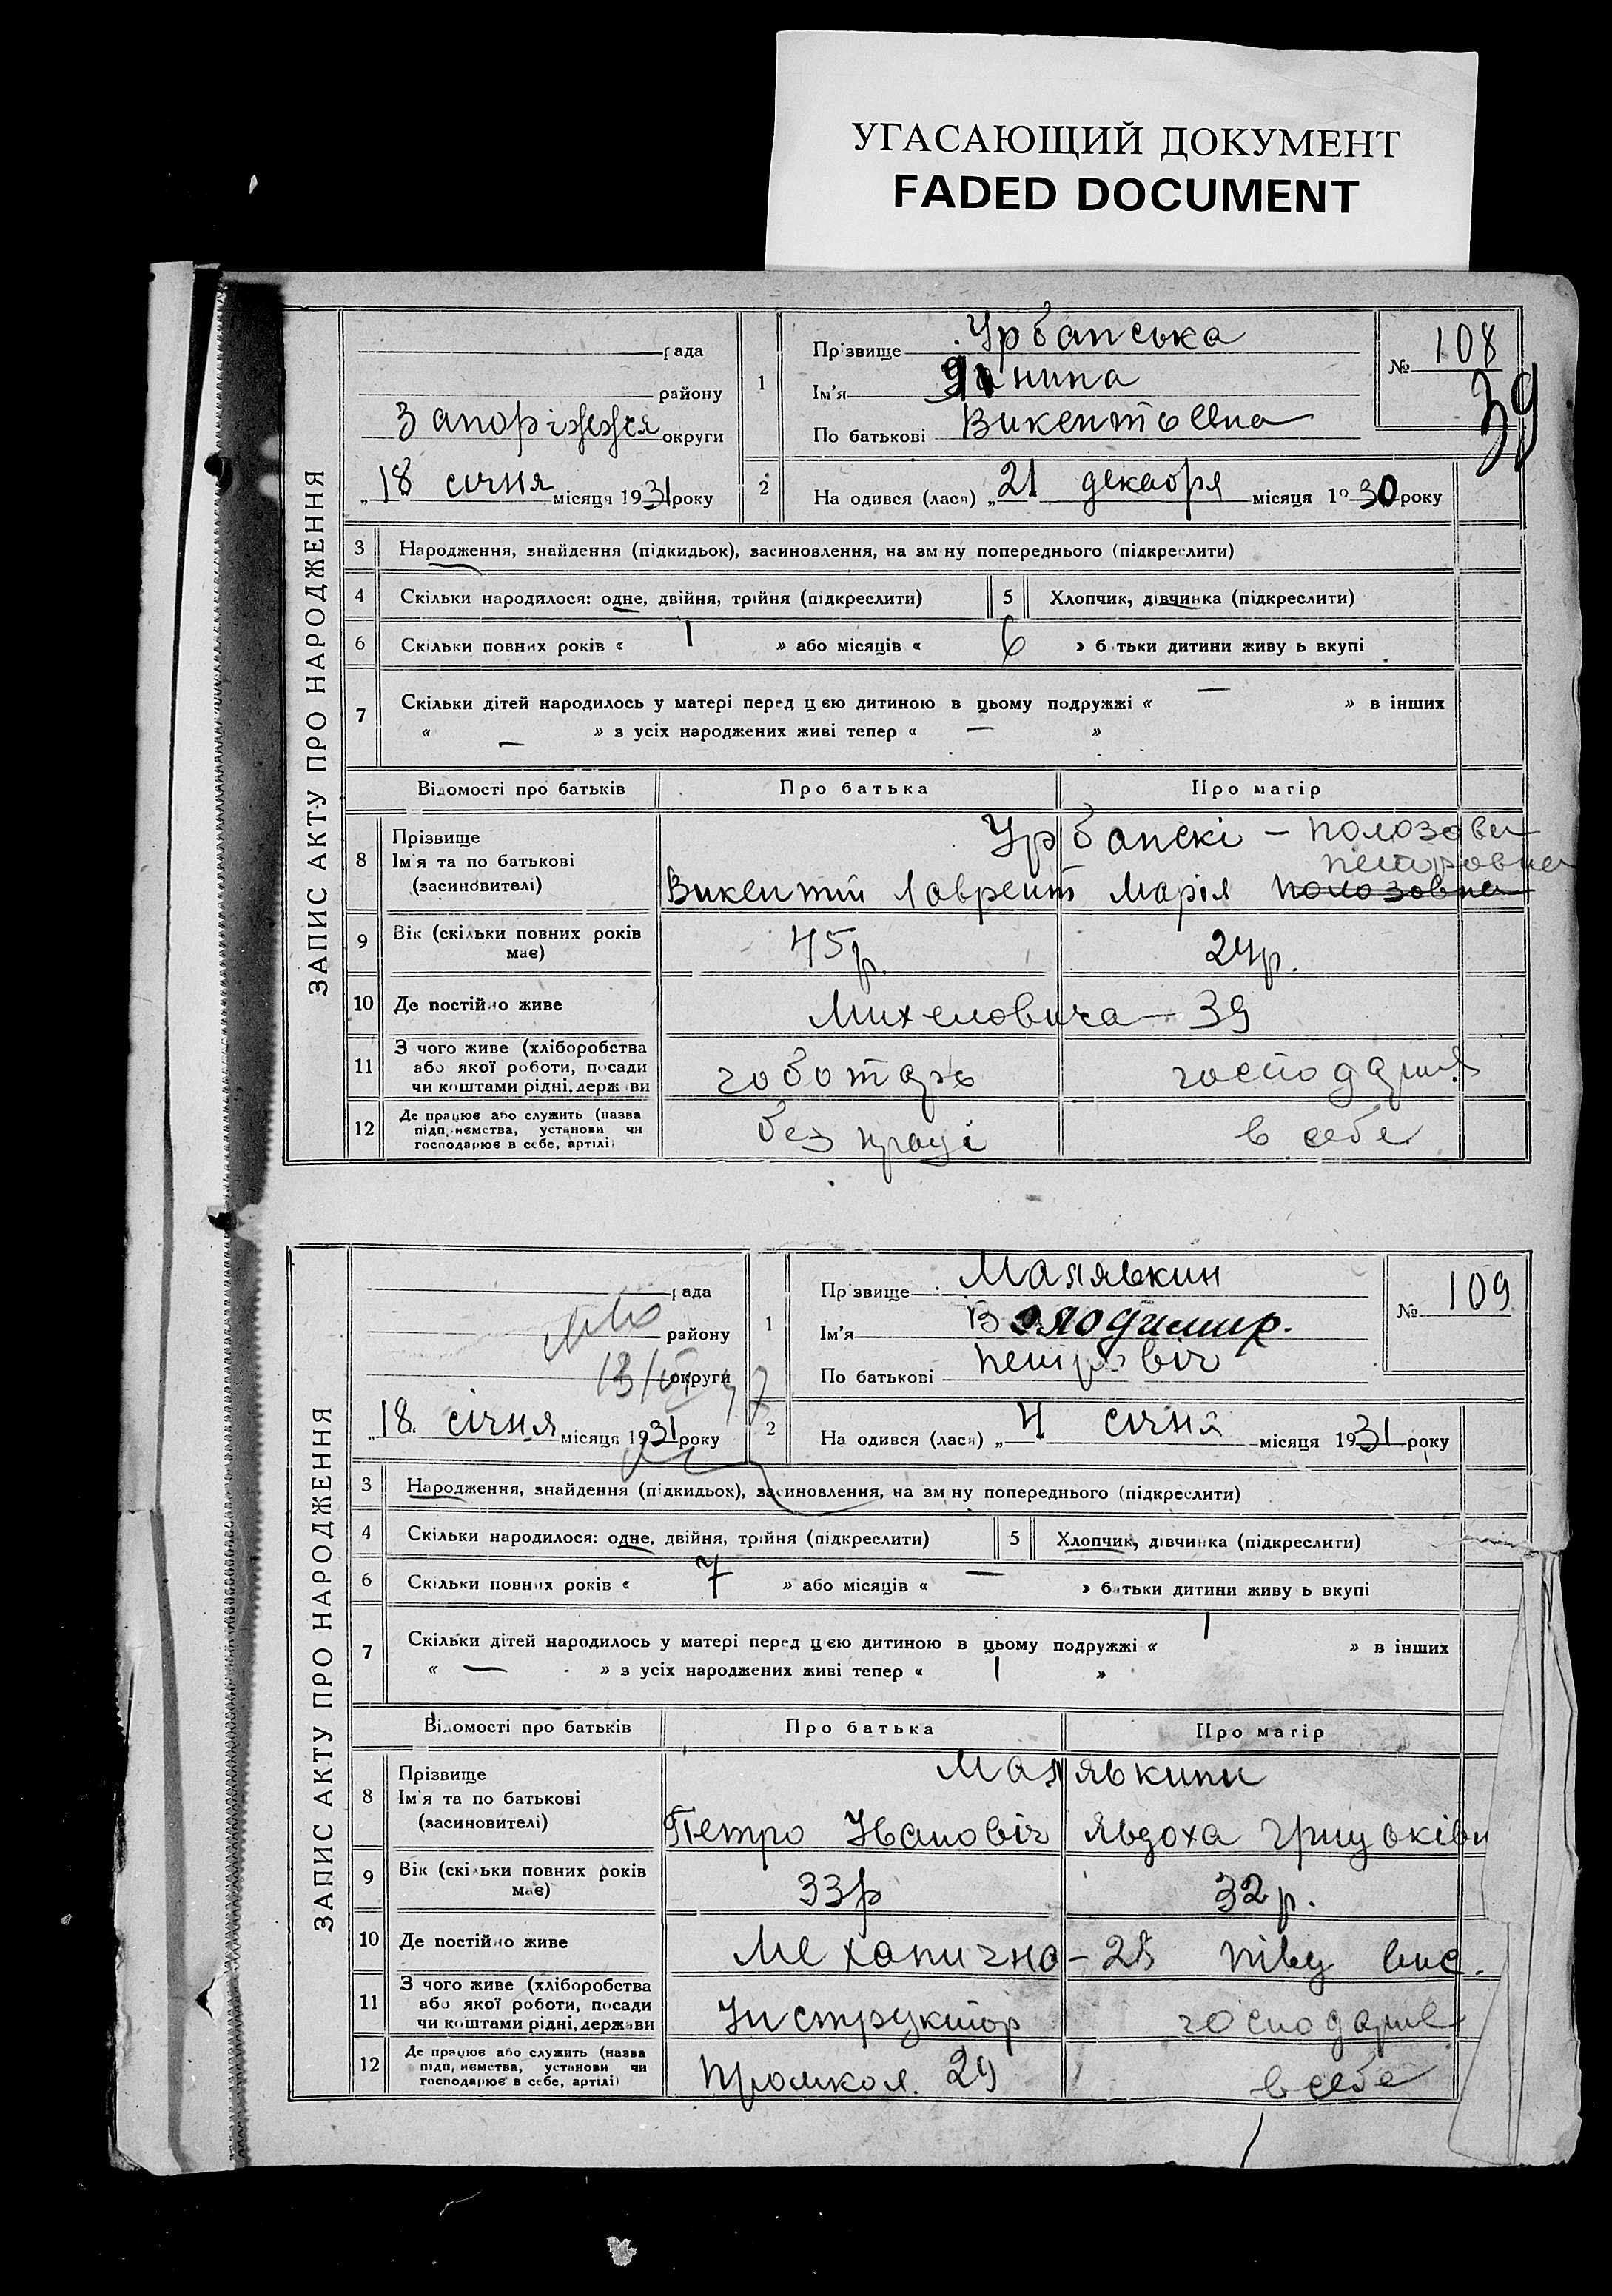 УГАСАЮЩИЙ ДОКУМЕНТ
FADED DOCUMENT
ЗАПИС АКТУ ПРО НАРОДЖЕННЯ
рада
району
Запоріжжя округи
„ 18 січня місяця 1931 року
1
Прізвище Урбанська
Ім'я Янина
По батькові Викентьевна
№ 108
39
2
На одився (лася) „ 21 декабря місяця 1930 року
3 Народження, знайдення (підкидьок), засиновлення, на зм ну попереднього (підкреслити)
4 Скільки народилося: одне, двійня, трійня (підкреслити) 5 Хлопчик, дівчинка (підкреслити)
6 Скільки повних років « 1 » або місяців « 6 » б тьки дитини живу ь вкупі
7 Скільки дітей народилось у матері перед цією дитиною в цьому подружжі « — » в інших
« — » з усіх народжених живі тепер « — »
Відомості про батьків Про батька Про матір
8 Прізвище Урбанскі – Полозова
Ім'я та по батькові Петровна
(засиновителі) Викентий Лаврент Марія Полозовна
9 Вік (скільки повних років має) 45р. 24р.
10 Де постійно живе Михеловича – 39
11 З чого живе (хліборобства
або якої роботи, посади
чи коштами рідні, держ ви чоботарь господарит
12 Де працює або служить (назва
підп иємства, установи чи
господарює в себе, артілі) без праці в себе
ЗАПИС АКТУ ПРО НАРОДЖЕННЯ
рада
району
округи
„ 18 січня місяця 1931 року
1
Пр звище Малявкин
Ім'я Володимир.
По батькові Петровіч
№ 109
2
На одився (лася) „ 4 січня місяця 1931 року
3 Народження, знайдення (підкидьок), засиновлення, на зм ну попереднього (підкреслити)
4 Скільки народилося: одне, двійня, трійня (підкреслити) 5 Хлопчик, дівчинка (підкреслити)
6 Скільки повних років « 7 » або місяців « — » батьки дитини живу ь вкупі
7 Скільки дітей народилось у матері перед цією дитиною в цьому подружжі « 1 » в інших
« — » з усіх народжених живі тепер « 1 »
Відомості про батьків Про батька Про матір
8 Прізвище Малявкини
Ім'я та по батькові
(засиновителі) Петро Іванович Явдоха Грицьків
9 Вік (скільки повних років має) 33р 32р.
10 Де постійно живе Механична – 28
11 З чого живе (хліборобства
або якої роботи, посади
чи коштами рідні, держави Инструктор господарит
12 Де працює або служить (назва
підп иємства, установи чи
господарює в себе, артілі) Промкол. 29 в себе